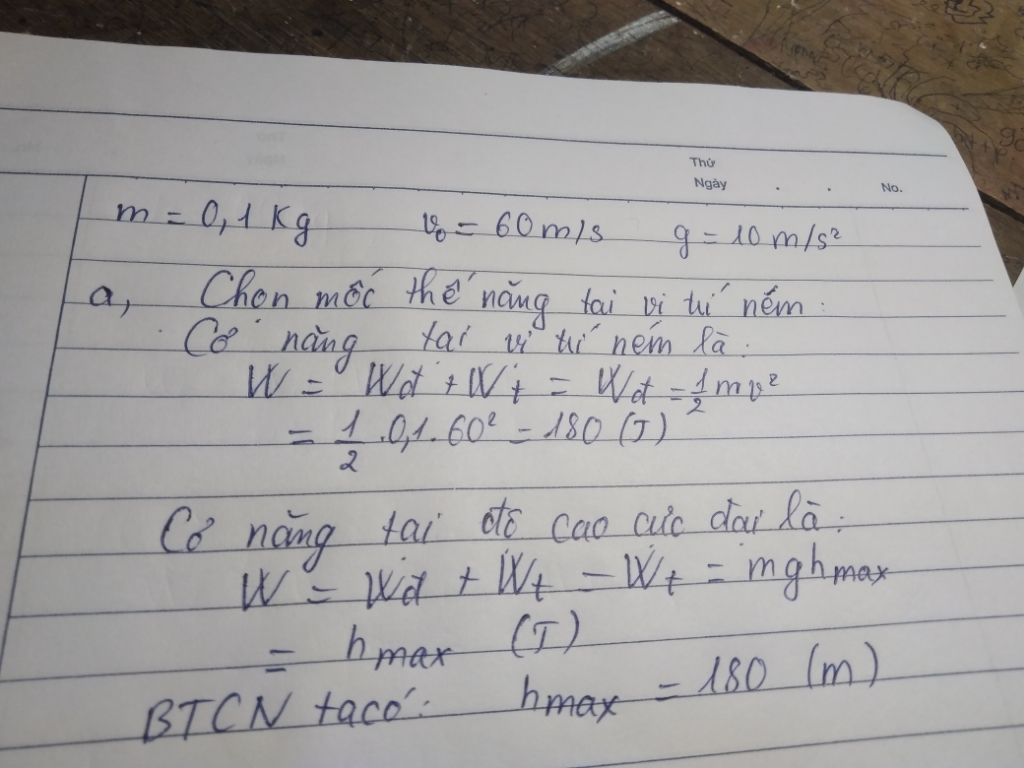 Thứ
Ngày . . No.
m = 0,1 Kg v₀ = 60 m/s g = 10 m/s²
a, Chọn mốc thế năng tại vị trí ném :
Cơ năng tại vị trí ném là :
W = Wđ + Wt = Wđ = 1/2 mv²
= 1/2 .0,1. 60² = 180 (J)
Cơ năng tại độ cao cực đại là :
W = Wđ + Wt = Wt = mghmax
= hmax (J)
BTCN ta có : hmax = 180 (m)